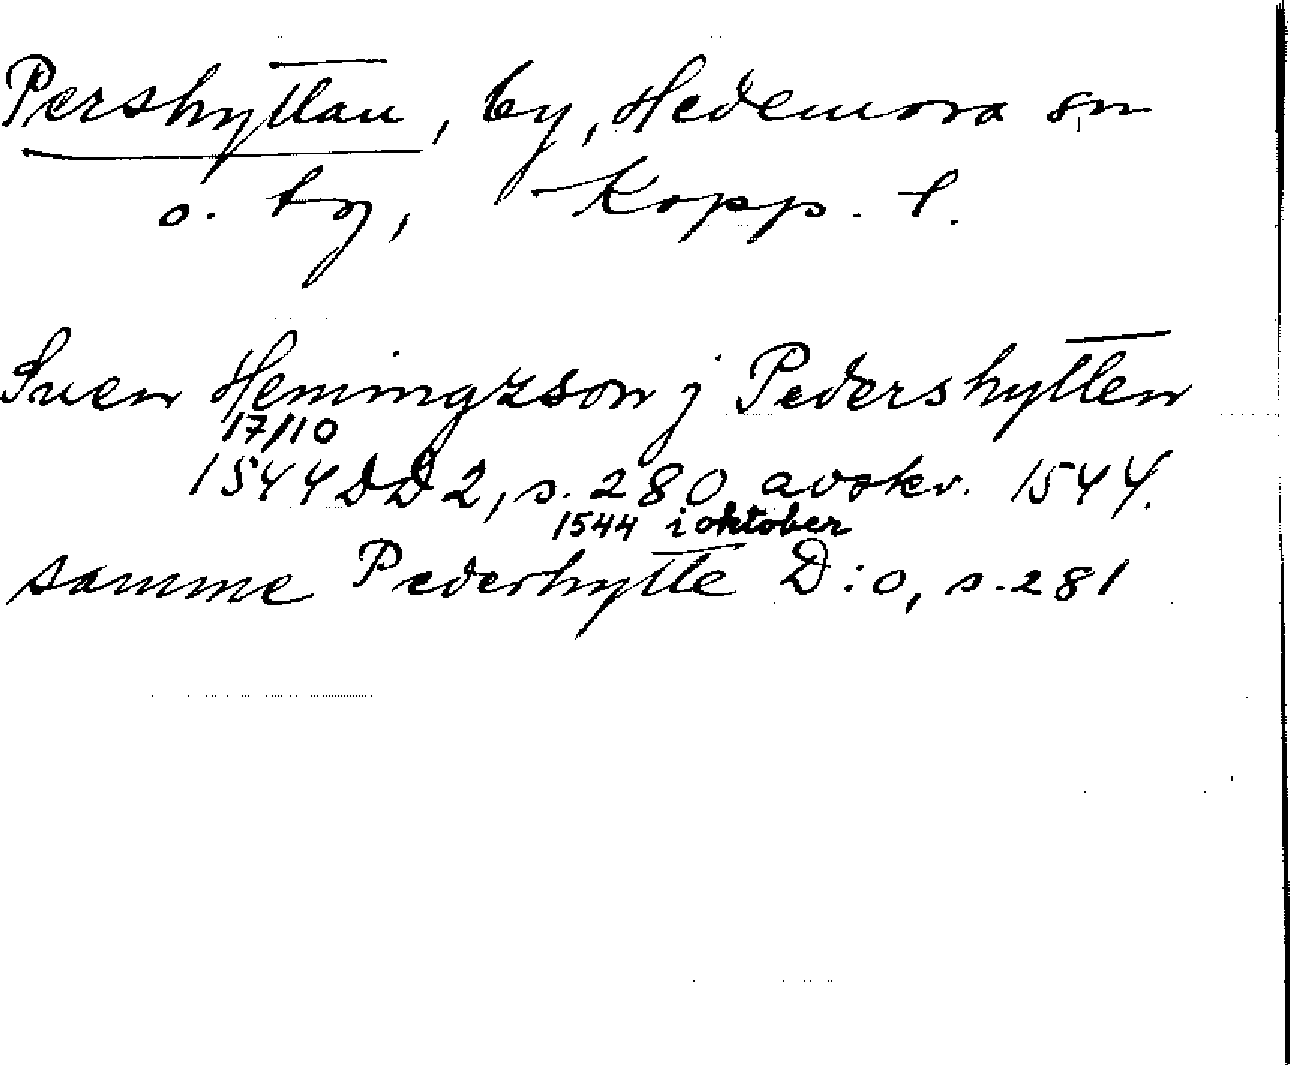 Pershyttan, by, Hedemora sn
o. tg, Kopp. l.
Suen Hemingzson j Pedershytten
17/10
1544 DD 2, s. 280 avskr. 1544.
1544 i oktober
samme Pederhytte D:o, s. 281